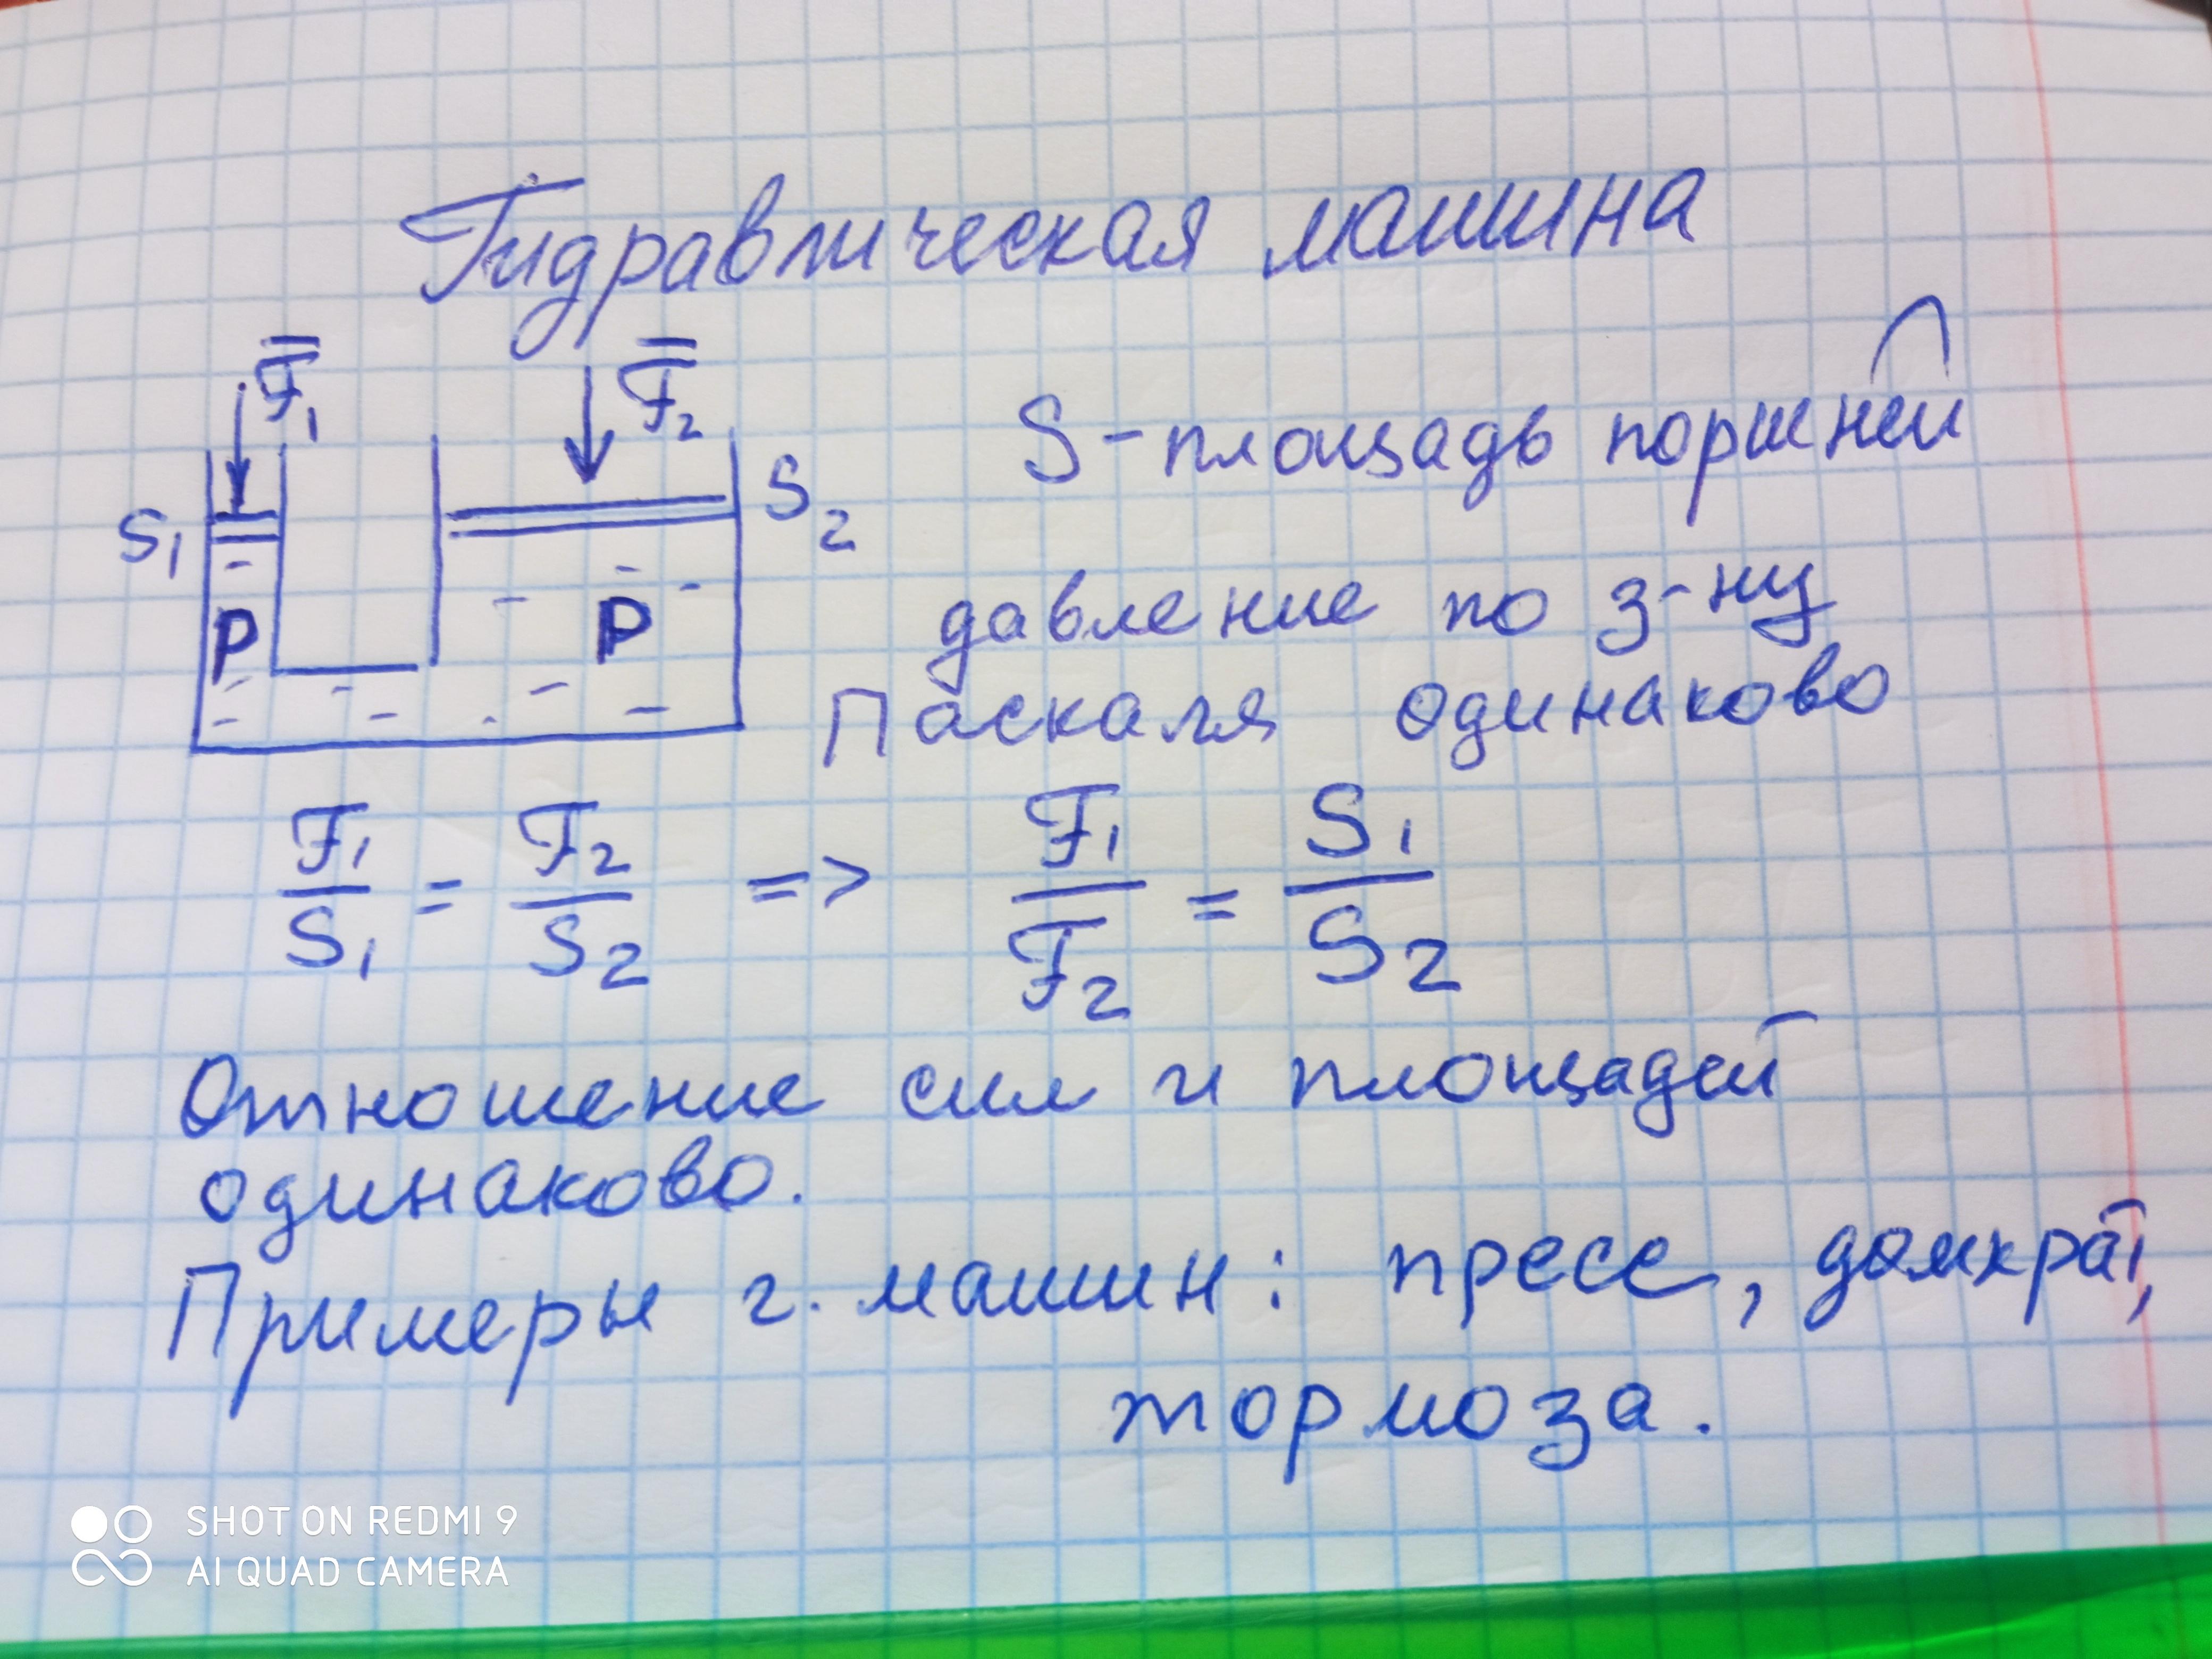 Гидравлическая машина
F̅₁ F̅₂
S - площадь поршней
S₁ S₂
P P
давление по з-ну
Паскаля одинаково
F₁/S₁ = F₂/S₂ => F₁/F₂ = S₁/S₂
Отношение сил и площадей
одинаково.
Примеры г. машин: пресс, домкрат,
тормоза.
SHOT ON REDMI 9
AI QUAD CAMERA